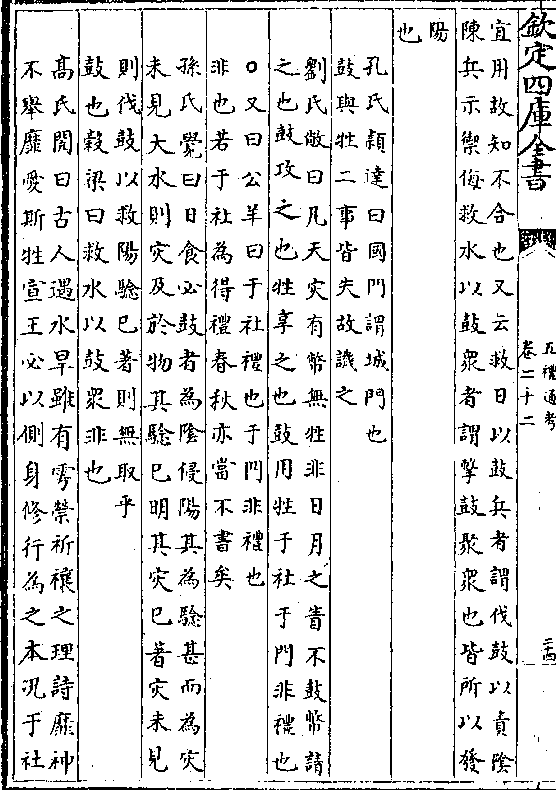 欽定四庫全書
五禮通考
卷二十二
二十四
宜用故知不合也又云救日以鼓兵者謂伐鼓以責陰
陳兵示禦侮救水以鼓衆者謂擊鼓聚衆也皆所以發
陽
也
孔氏穎達曰國門謂城門也
鼓與牲二事皆失故譏之
劉氏敞曰凡天災有幣無牲非日月之眚不鼓幣請
之也鼓攻之也牲享之也鼓用牲于社于門非禮也
○又曰公羊曰于社禮也于門非禮也
非也若于社為得禮春秋亦當不書矣
孫氏覺曰日食必鼓者為陰侵陽其為驗甚而為災
未見大水則災及於物其驗已明其災已著災未見
則伐鼓以救陽驗已著則無取乎
鼓也榖梁曰救水以鼓衆非也
髙氏閌曰古人遇水旱雖有雩禜祈禳之理詩靡神
不舉靡愛斯牲宣王必以側身修行為之本况于社